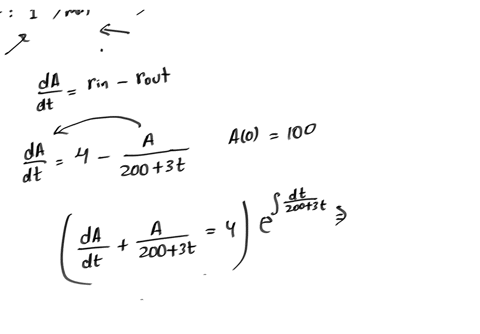 dA/dt = rin − rout
dA/dt = 4 − A/(200+3t) A(0) = 100
(dA/dt + A/(200+3t) = 4) e^∫dt/(200+3t)